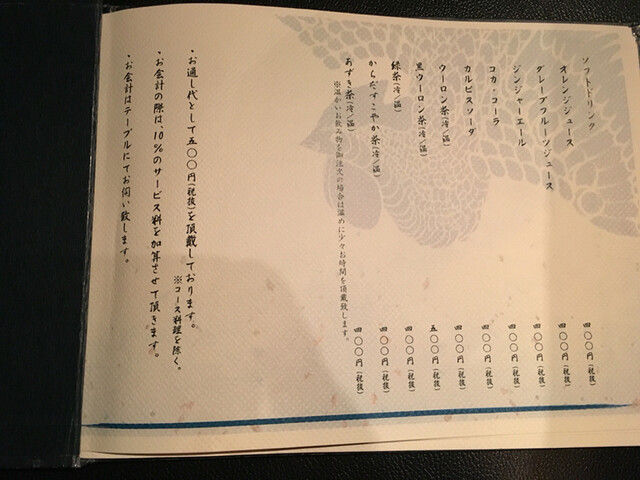 ソフトドリンク
オレンジジュース 四〇〇円(税抜)
グレープフルーツジュース 四〇〇円(税抜)
ジンジャーエール 四〇〇円(税抜)
コカ・コーラ 四〇〇円(税抜)
カルピスソーダ 四〇〇円(税抜)
ウーロン茶(冷/温) 四〇〇円(税抜)
黒ウーロン茶(冷/温) 五〇〇円(税抜)
緑茶(冷/温) 四〇〇円(税抜)
からだすこやか茶(冷/温) 四〇〇円(税抜)
あずき茶(冷/温) 四〇〇円(税抜)
※温かいお飲み物を御注文の場合は温めに少々お時間を頂戴致します。
・お通し代として五〇〇円(税抜)を頂戴しております。
※コース料理を除く。
・お会計の際は、10%のサービス料を加算させて頂きます。
・お会計はテーブルにてお伺い致します。